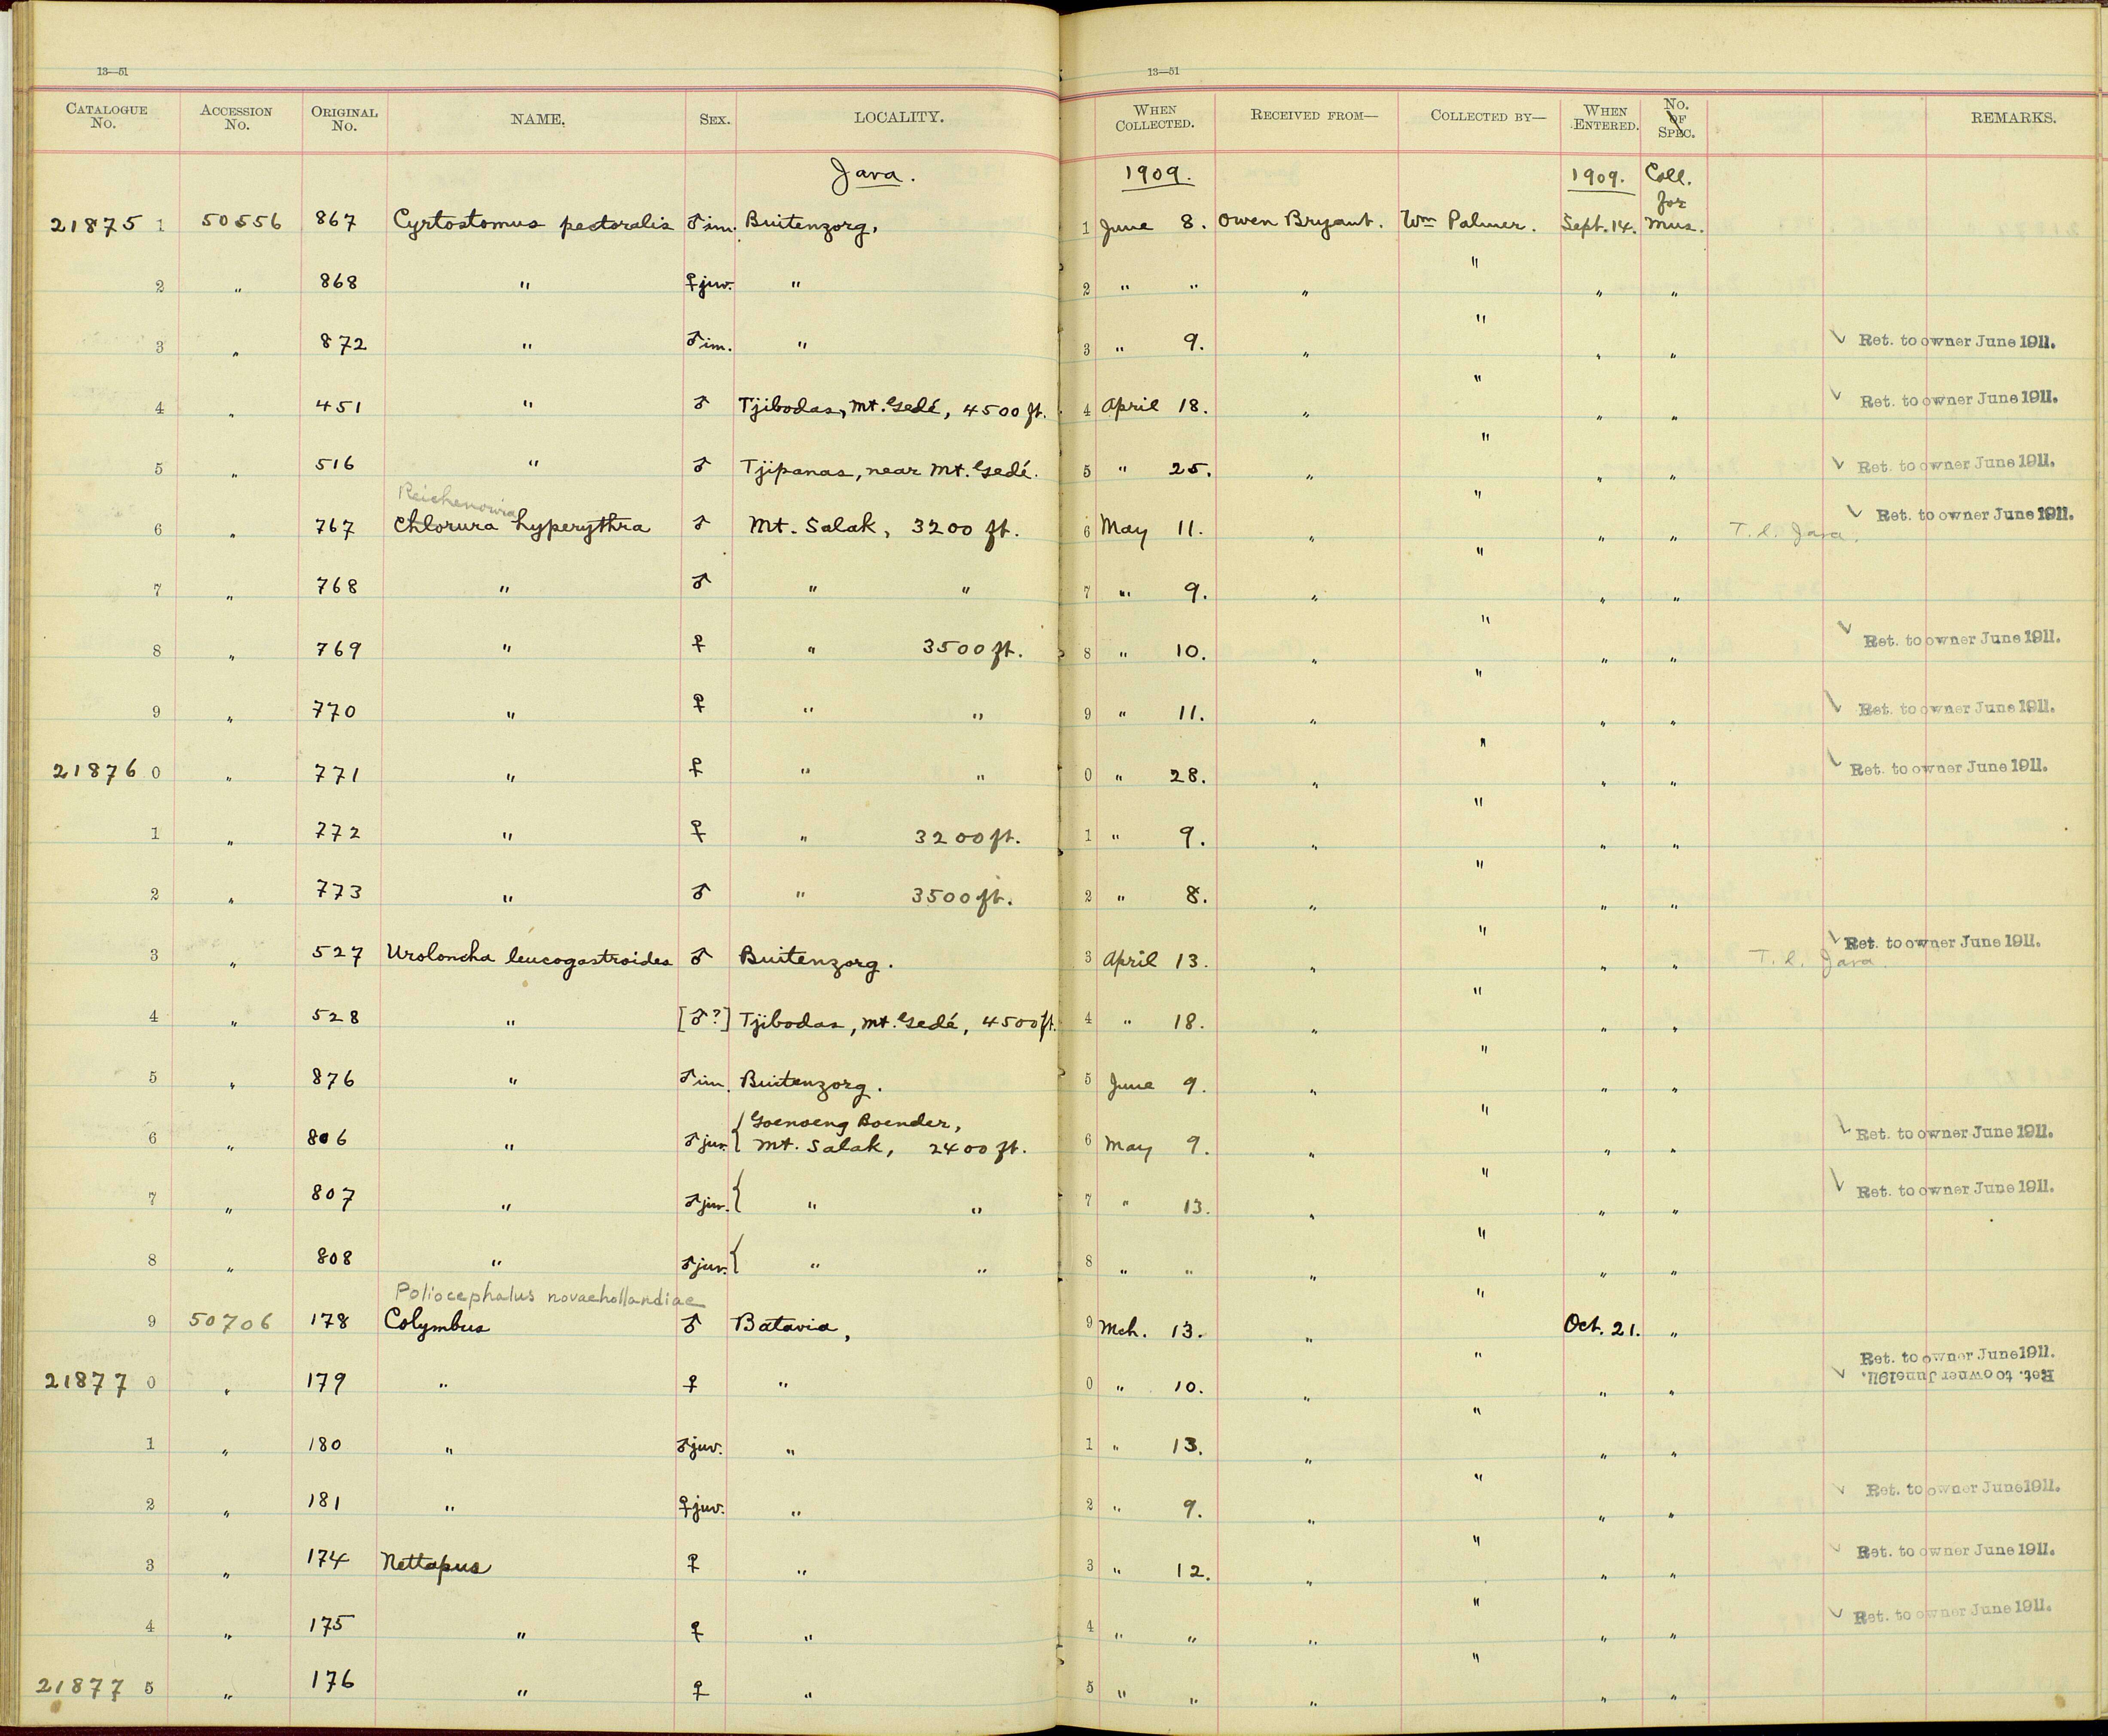 13—51 13—51
CATALOGUE No. ACCESSION No. ORIGINAL No. NAME. SEX. LOCALITY. WHEN COLLECTED. RECEIVED FROM— COLLECTED BY— WHEN ENTERED. No. OF SPEC. REMARKS.
Java. 1909. 1909. Coll. for
21875 1 50556 867 Cyrtostomus pectoralis ♂ im. Buitenzorg, 1 June 8. Owen Bryant. Wm Palmer. Sept. 14. Mus.
2 " 868 " ♀ juv. " 2 " " " " " "
3 " 872 " ♂ im. " 3 " 9. " " " " ✓ Ret. to owner June 1911.
4 " 451 " ♂ Tjibodas, Mt. Gedé, 4500 ft. 4 April 18. " " " " ✓ Ret. to owner June 1911.
5 " 516 " ♂ Tjipanas, near Mt. Gedé. 5 " 25. " " " " ✓ Ret. to owner June 1911.
Reichenowia
6 " 767 Chlorura hyperythra ♂ Mt. Salak, 3200 ft. 6 May 11. " " " " T. l. Java. ✓ Ret. to owner June 1911.
7 " 768 " ♂ " " 7 " 9. " " " "
8 " 769 " ♀ " 3500 ft. 8 " 10. " " " " ✓ Ret. to owner June 1911.
9 " 770 " ♀ " " 9 " 11. " " " " ✓ Ret. to owner June 1911.
21876 0 " 771 " ♀ " " 0 " 28. " " " " ✓ Ret. to owner June 1911.
1 " 772 " ♀ " 3200 ft. 1 " 9. " " " "
2 " 773 " ♂ " 3500 ft. 2 " 8. " " " "
3 " 527 Uroloncha leucogastroides ♂ Buitenzorg. 3 April 13. " " " " T. l. Java ✓ Ret. to owner June 1911.
4 " 528 " [♂?] Tjibodas, Mt. Gedé, 4500 ft. 4 " 18. " " " "
5 " 876 " ♂ im. Buitenzorg. 5 June 9. " " " "
6 " 806 " ♂ juv. { Goenoeng Boender, Mt. Salak, 2400 ft. 6 May 9. " " " " ✓ Ret. to owner June 1911.
7 " 807 " ♂ juv. { " " 7 " 13. " " " " ✓ Ret. to owner June 1911.
8 " 808 " ♂ juv. { " " 8 " " " " " "
Poliocephalus novaehollandiae
9 50706 178 Colymbus ♂ Batavia, 9 Mch. 13. " " Oct. 21. "
21877 0 " 179 " ♀ " 0 " 10. " " " " ✓ Ret. to owner June 1911.
Ret. to owner June 1911.
1 " 180 " ♂ juv. " 1 " 13. " " " "
2 " 181 " ♀ juv. " 2 " 9. " " " " ✓ Ret. to owner June 1911.
3 " 174 Nettapus ♀ " 3 " 12. " " " " ✓ Ret. to owner June 1911.
4 " 175 " ♀ " 4 " " " " " " ✓ Ret. to owner June 1911.
21877 5 " 176 " ♀ " 5 " " " " " "